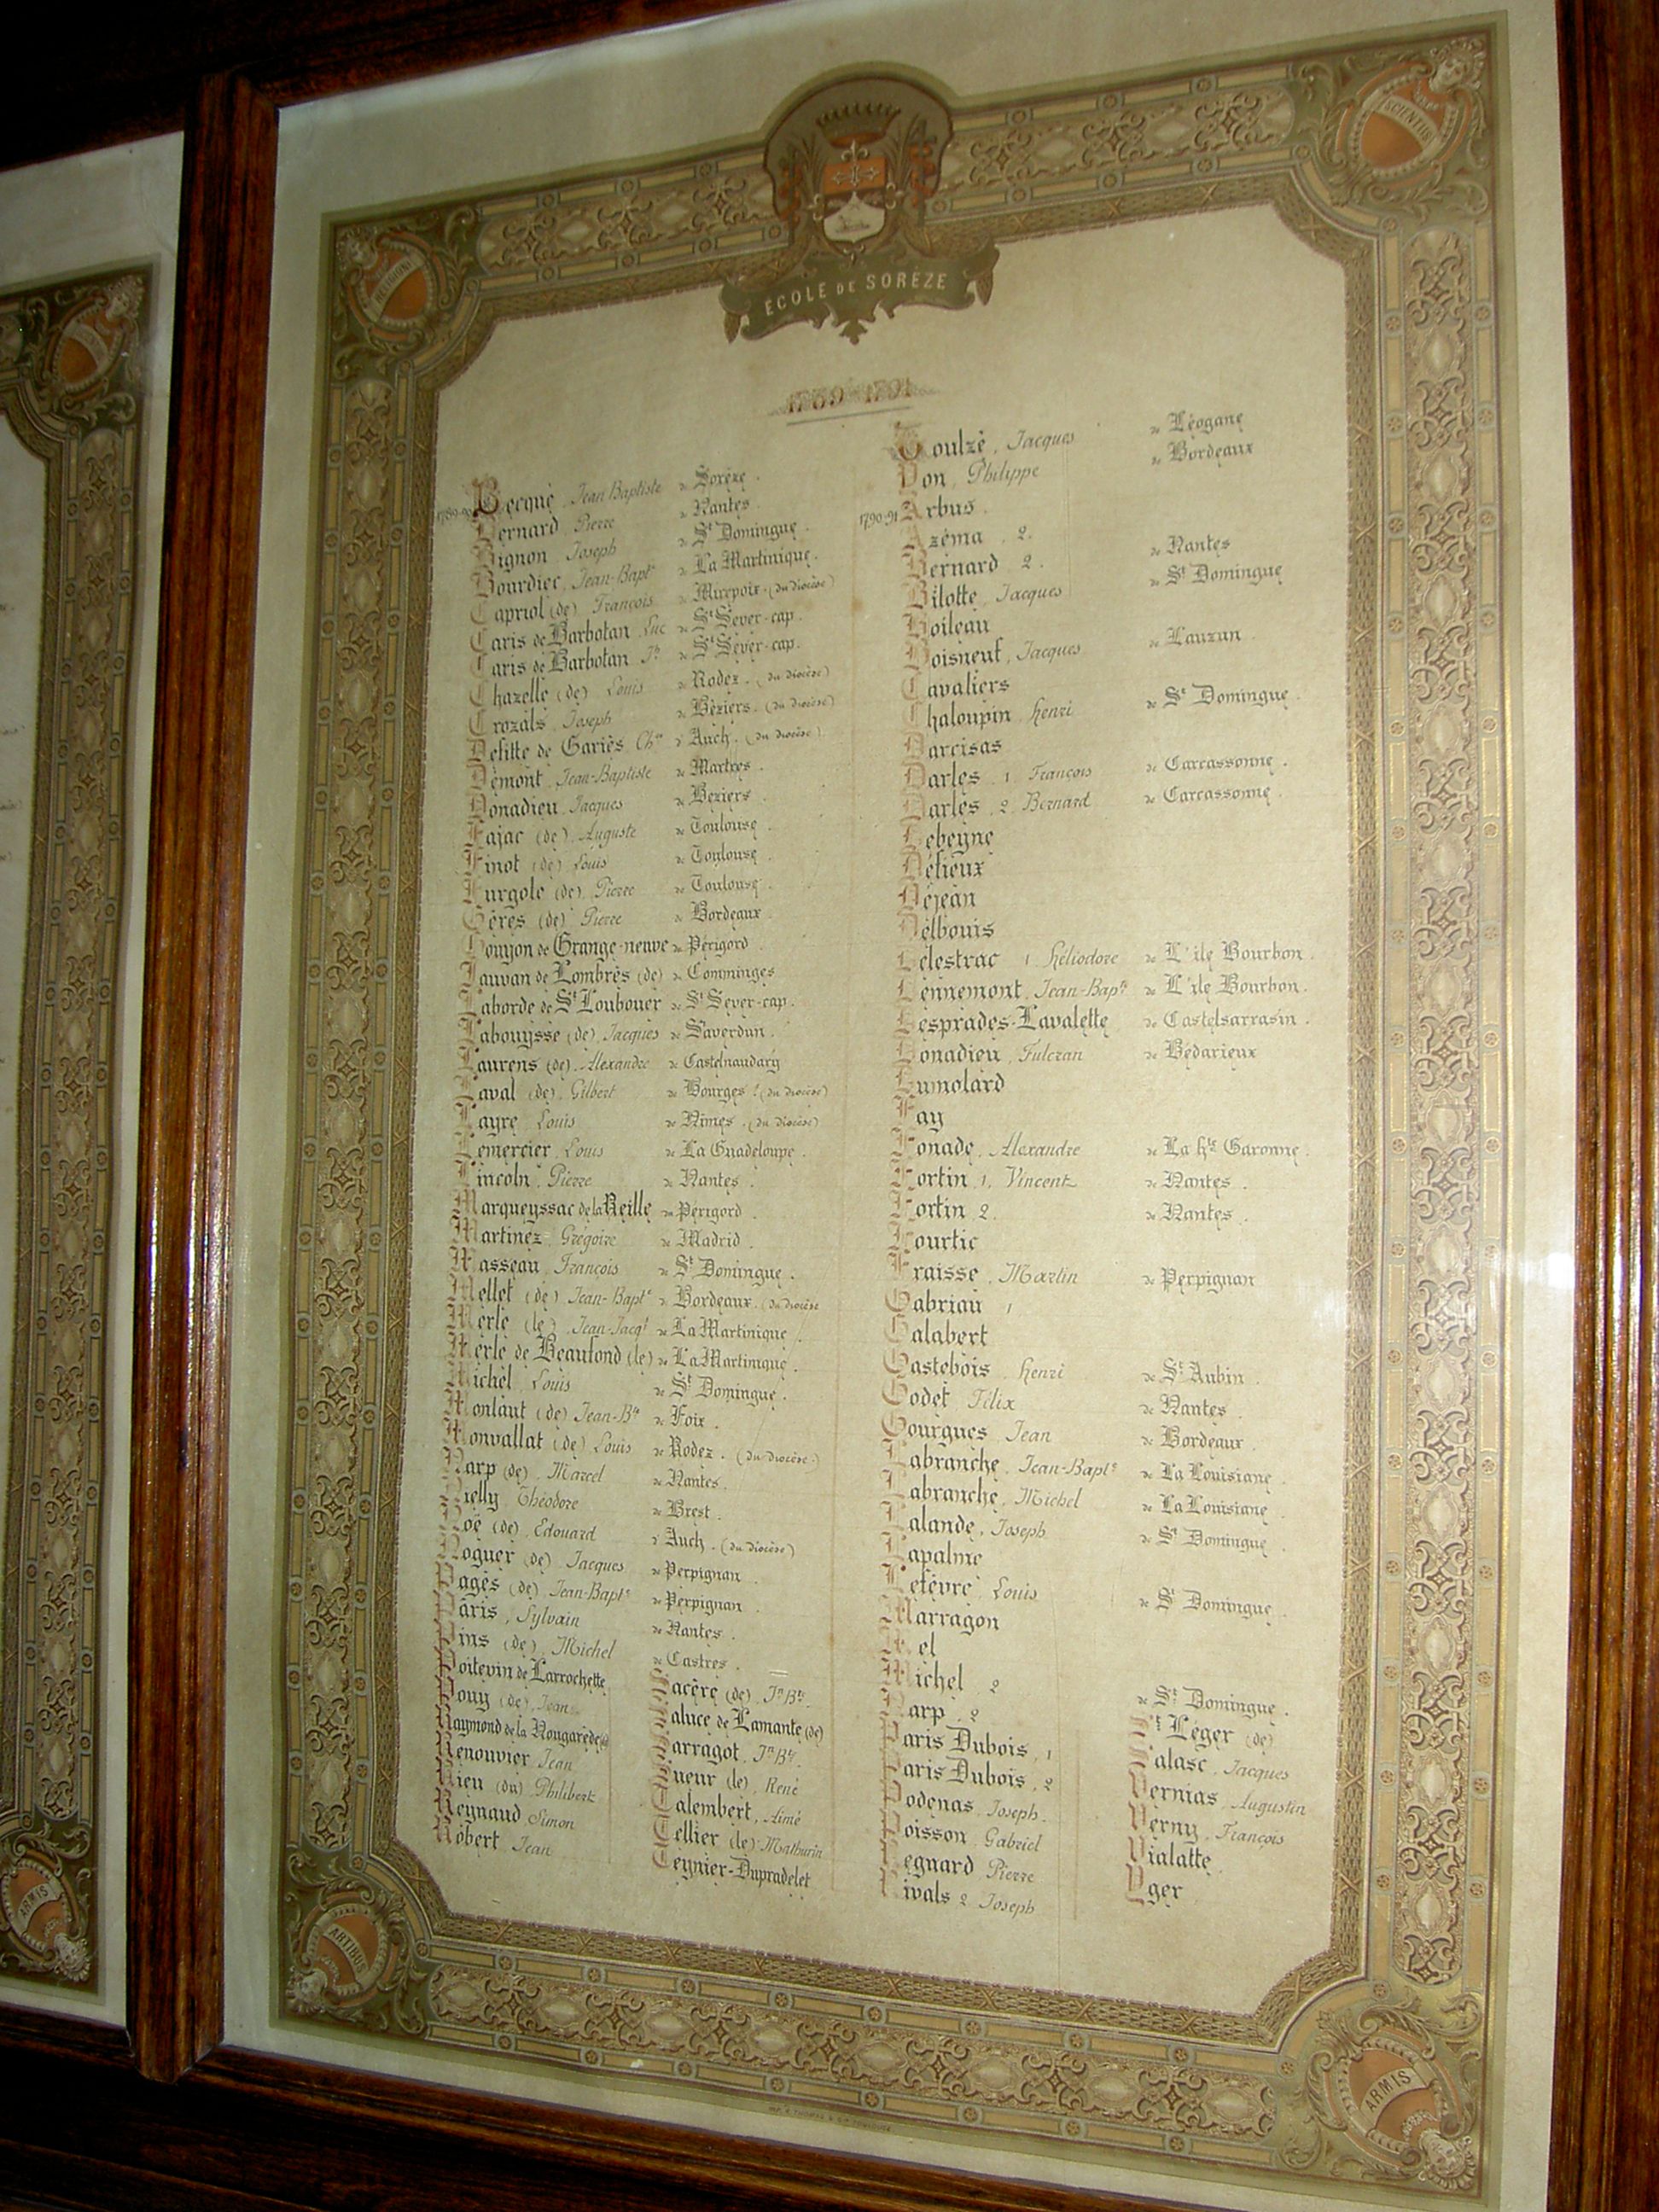 RELIGIONE
SCIENTIIS
ÉCOLE DE SORÈZE
1789-1791
1789-90 Becqué, Jean Baptiste de Sorèze.
Bernard Pierre de Nantes
Bignon Joseph de St Domingue.
Bourdier, Jean-Bapte de La Martinique.
Capriol (de) François de Mirepoix. (du diocèse)
Caris de Barbotan Luc de St Sever-cap.
Caris de Barbotan Jh de St Sever-cap.
Chazelle (de) Louis de Rodez. (du diocèse)
Crozals Joseph de Béziers. (du diocèse)
Defitte de Gariès d'Auch. (du diocèse)
Démont, Jean-Baptiste de Martres.
Donadieu, Jacques de Béziers
Fajac (de) Auguste de Toulouse
Finot (de) Louis de Toulouse.
Furgole (de) Pierre de Toulouse.
Gères (de) Pierre de Bordeaux
Goujon de Grange-neuve du Périgord.
Jauvan de Lombrès (de) de Comminges
Laborde de St Loubouer de St Sever-cap.
Labouysse (de) Jacques de Saverdun.
Laurens (de). Alexandre de Castelnaudary
Laval (de). Gilbert de Bourges. (du diocèse)
Layre Louis de Nîmes. (du diocèse)
Lemercier. Louis de La Guadeloupe.
Lincoln. Pierre de Nantes.
Marqueyssac de la Reille du Périgord.
Martinez Grégoire de Madrid.
Masseau François de St Domingue.
Mellet (de) Jean-Bapte de Bordeaux. (du diocèse
Merle (le). Jean-Jacqs de La Martinique.
Merle de Beaufond (le) de La Martinique.
Michel Louis de St Domingue.
Monlaut (de) Jean-Bte de Foix.
Monvallat (de) Louis de Rodez. (du diocèse)
Narp (de). Marcel de Nantes.
Théodore de Brest.
Noé (de) Edouard d'Auch. (du diocèse)
Noguer (de) Jacques de Perpignan.
Pagès (de) Jean-Bapte de Perpignan.
Pâris, Sylvain de Nantes.
Pins (de) Michel de Castres.
Poitevin de Larrochette
Pouy (de) Jean
Raymond de la Nougarède (de)
Renouvier Jean
Rieu (du) Philibert
Reynaud Simon
Robert Jean
Sacère (de). Jn Bte.
Saluce de Lamante (de)
Sarragot. Jn Bte.
Sueur (le). René
Talembert, Aimé
Tellier (le) Mathurin
Teynier-Dupradelet
Toulzé, Jacques de Léogane
Von Philippe de Bordeaux
1790-91 Arbus
Azéma. 2.
Bernard 2. de Nantes
Bilotte. Jacques de St Domingue
Boileau
Boisneuf, Jacques de Lauzun
Cavaliers
Chaloupin Henri de St Domingue.
Darcisas
Darles. 1 François de Carcassonne.
Darles. 2 Bernard de Carcassonne.
Debeyne
Défieux
Déjean
Delbouis
Délestrac 1 Héliodore de L'île Bourbon.
Dennemont. Jean-Bapte de L'île Bourbon.
Desprades-Lavalette de Castelsarrasin.
Donadieu, Fulcran de Bédarieux
Dumolard
Fay
Fonade. Alexandre de La Hte Garonne.
Fortin 1. Vincent de Nantes.
Fortin 2. de Nantes.
Fourtic
Fraisse. Martin de Perpignan
Gabriau 1
Galabert
Gastebois. Henri de St Aubin.
Godet Félix de Nantes.
Gourgues Jean de Bordeaux.
Labranche. Jean-Bapte de La Louisiane.
Labranche. Michel de La Louisiane.
Lalande. Joseph de St Domingue.
Lapalme
Lefèvre Louis de St Domingue
Marragon
Mel
Michel 2 de St Domingue.
Narp. 2
Paris Dubois. 1
Paris Dubois. 2
Podenas. Joseph.
Poisson Gabriel
Regnard Pierre
Rivals 2 Joseph
St Léger (de)
Salasc. Jacques
Vernias Augustin
Verny. François
Vialatte
Yger
ARTIBUS
ARMIS
ARMIS